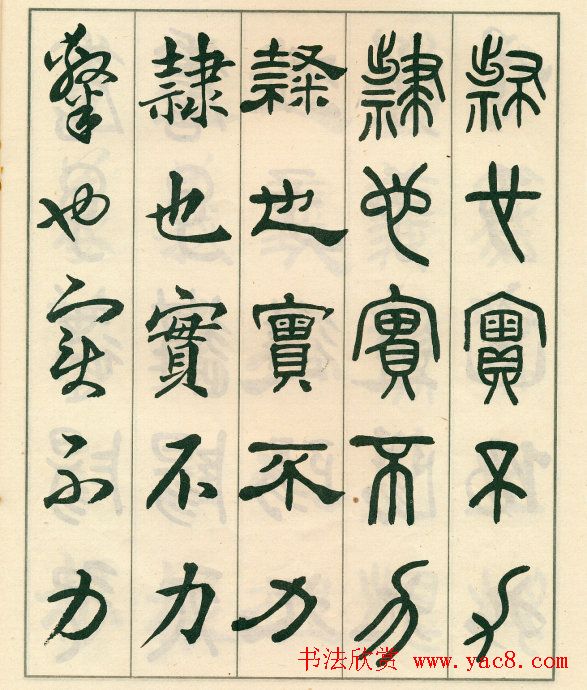 隸也實不力
隸也實不力
隸也實不力
隸也實不力
隸也實不力
书法欣赏 www.yac8.com